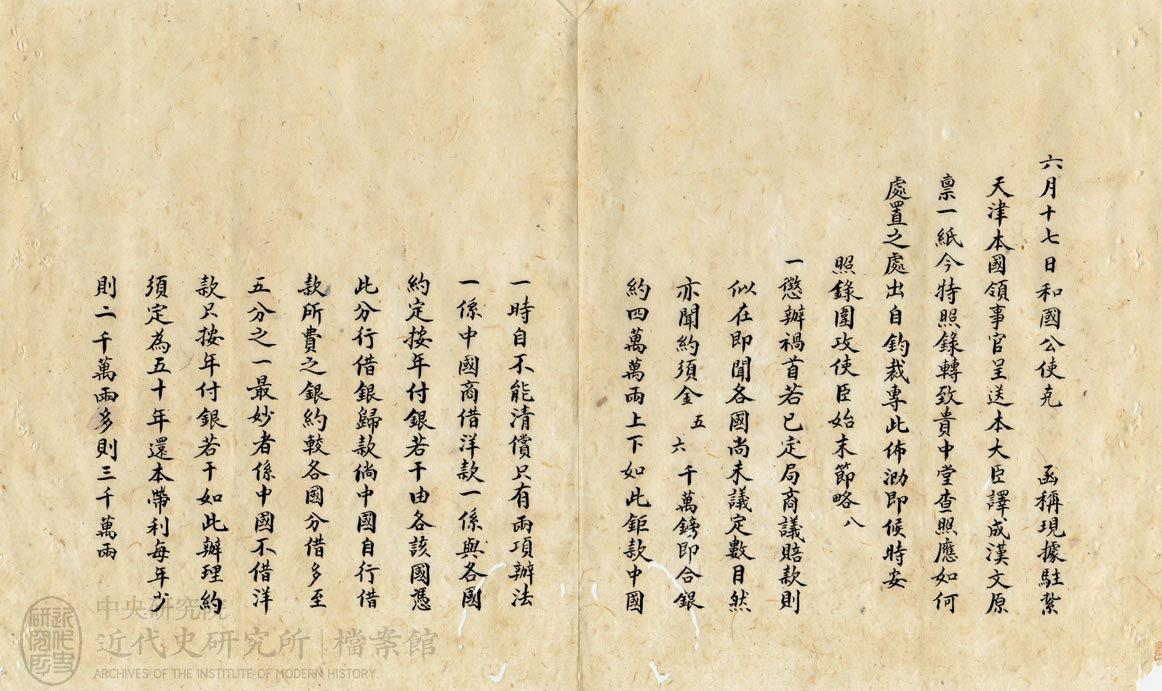 六月十七日和國公使克 函稱現據駐紮
天津本國領事官呈送本大臣譯成漢文原
禀一紙今特照錄轉致貴中堂查照應如何
處置之處出自鈞裁專此佈泐即候時安
照錄圍攻使臣始末節略八
一懲辦禍首若已定局商議賠款則
似在即聞各國尚未議定數目然
亦聞約須金五六千萬鎊即合銀
約四萬萬兩上下如此鉅款中國
一時自不能清償只有兩項辦法
一係中國商借洋款一係與各國
約定按年付銀若干由各該國憑
此分行借銀歸款倘中國自行借
款所費之銀約較各國分借多至
五分之一最妙者係中國不借洋
款只按年付銀若干如此辦理約
須定為五十年還本帶利每年少
則二千萬兩多則三千萬兩
中央研究院
近代史研究所 檔案館
ARCHIVES OF THE INSTITUTE OF MODERN HISTORY